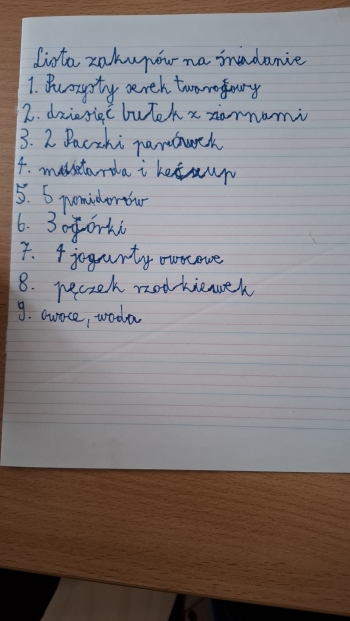 Lista zakupów na śniadanie
1. Puszysty serek twarogowy
2. dziesięć bułek z ziarnami
3. 2 Paczki parówek
4. musztarda i keczup
5. 5 pomidorów
6. 3 ogórki
7. 4 jogurty owocowe
8. pęczek rzodkiewek
9. owoce, woda